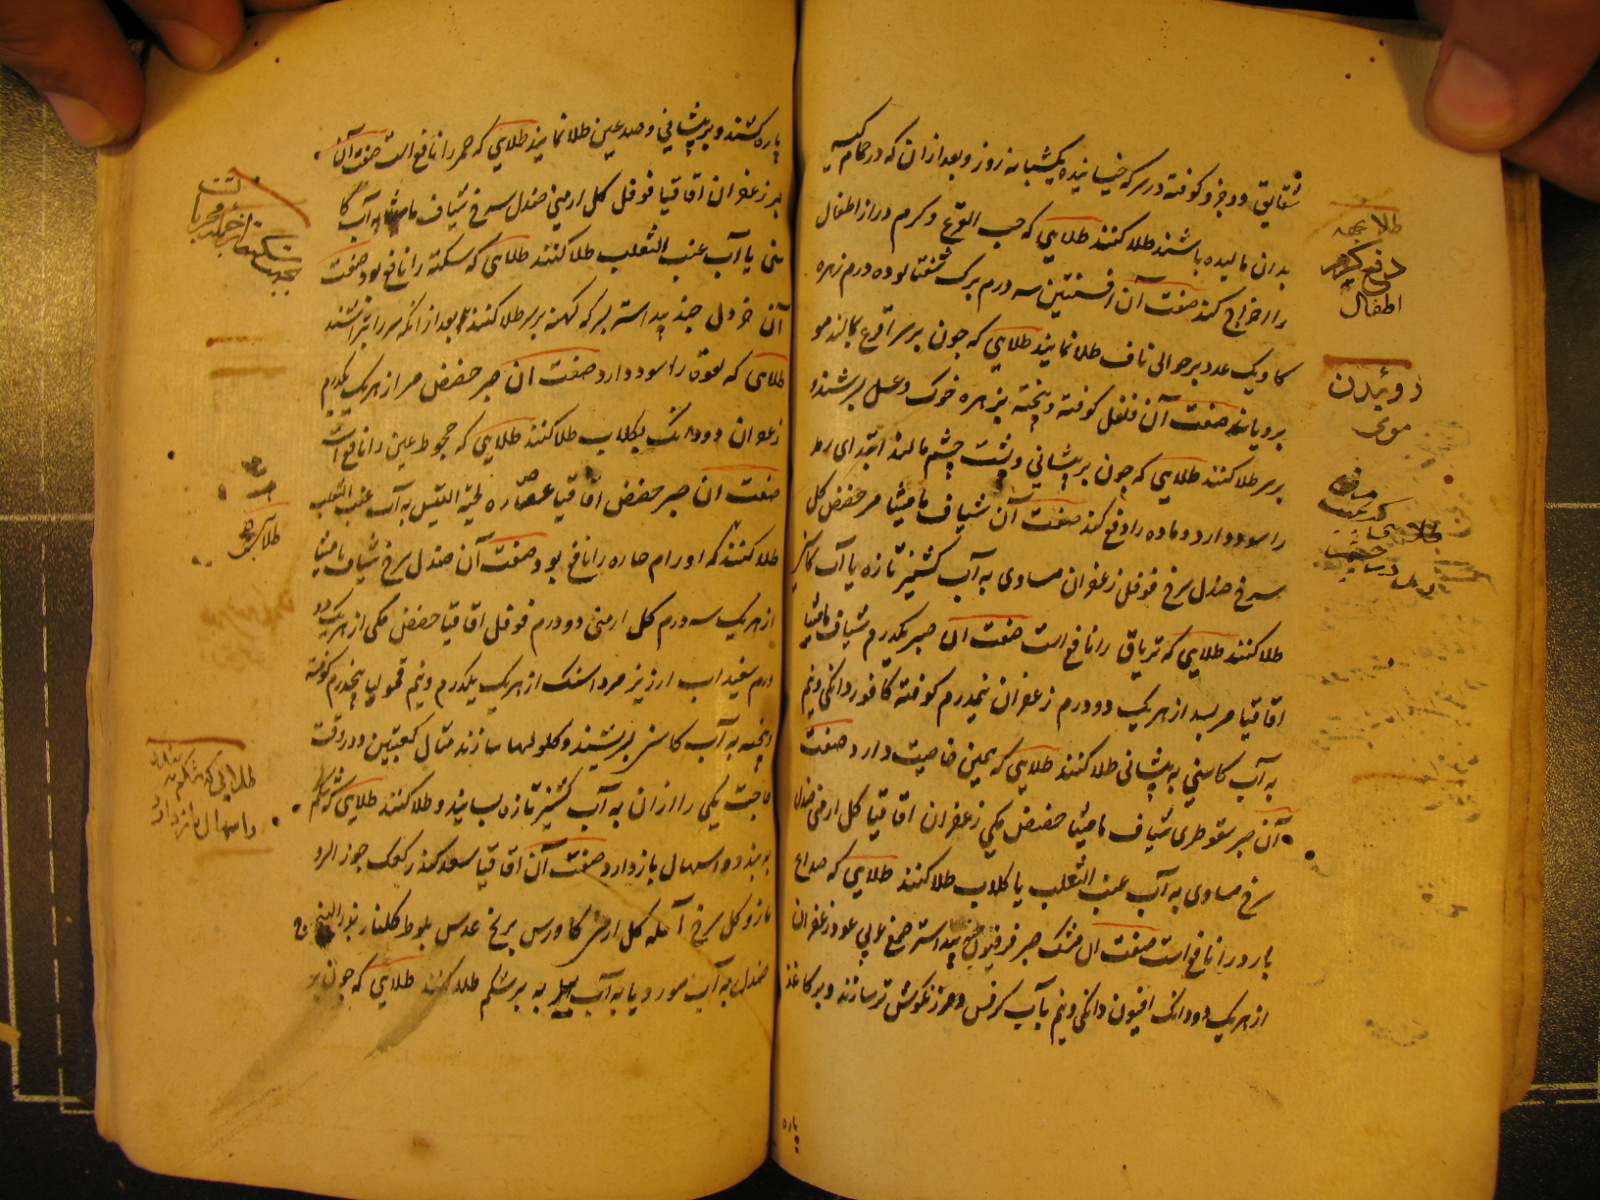 شقایق دو جزو کوفته در سرکه خیسانیده یکشبانه روز و بعد از ان که در حمام
بدان مالیده باشند طلا کنند طلایی که حب القرع و کرم دراز اطفال
را اخراج کند صفت آن افسنتین سه درم برک شفتالو ده درم زهره
کاو یک عدد بر حوالی ناف طلا نمایند طلایی که چون بر سر اقرع بمالند مو
برویاند صفت آن فلفل کوفته و پخته بزهره خوک و عسل بسرشند و
بر سر طلا کنند طلایی که چون بر پیشانی و پشت چشم مالند ابتدای
را سود دارد و ماده را دفع کند صفت آن شیاف مامیثا مر حضض کل
سرخ صندل سرخ فوفل زعفران مساوی به آب کشنیز تازه یا آب
طلا کنند طلایی که تریاق را نافع است صفت ان صبر یکدرم شیاف مامیثا
اقاقیا مر بسد از هر یک دو درم زعفران نیمدرم کوفته کافور دانکی و نیم
به آب کاسنی به پیشانی طلا کنند طلایی که همین خاصیت دارد صفت
آن صبر سقوطری شیاف مامیثا حضض مکی زعفران اقاقیا کل ارمنی صندل
سرخ مساوی به آب عنب الثعلب یا کلاب طلا کنند طلایی که صداع
بارد را نافع است صفت ان مشک صبر فرفیون جندبیدستر صمغ عربی عود زعفران
از هر یک دو دانک افیون دانکی و نیم بآب کرفس و مرزنکوش تر سازند و بر کاغذ
پاره
طلا بجهه
دفع کرم
اطفال
روئیدن
موی
پاره کشند و بر پیشانی و صدعین طلا نمایند طلایی که حمره را نافع است صفت آن
صبر زعفران اقاقیا فوفل کل ارمنی صندل سرخ شیاف مامیثا به آب
سنی یا آب عنب الثعلب طلا کنند طلایی که سکته را نافع بود صفت
آن خردل جندبیدستر بسرکه کهنه بر سر طلا کنند بعد از آنکه سر را بتراشند
طلایی که لقوه را سود دارد صفت ان صبر حضض مر از هر یک یکدرم
زعفران دو دانک بکلاب طلا کنند طلایی که جحوظ عین را نافع است
صفت ان صبر حضض اقاقیا عصاره لحیة التیس به آب عنب الثعلب
طلا کنند که اورام حاره را نافع بود صفت آن صندل سرخ شیاف مامیثا
از هر یک سه درم کل ارمنی دو درم فوفل اقاقیا حضض مکی از هر یک دو
درم سفیداب ارزیز مرداسنک از هر یک یکدرم و نیم قیمولیا پنجدرم کوفته
و پخته به آب کاسنی بسرشند و کلولها سازند مثال کعبتین و در وقت
حاجت یکی را از ان به آب کشنیز تازه بسایند و طلا کنند طلایی که شکم
به بندد و اسهال باز دارد صفت آن اقاقیا سعد کندر کعک جوز السرو
مازو کل سرخ آمله کل ارمنی کاورس برنج عدس بلوط کلنار بزرالبنج
صندل به آب مورد یا به آب به بر شکم طلا کنند طلایی که چون بر
طلایی که شکم به بندد
و اسهال باز دارد